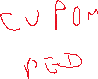 CUPOM
PED